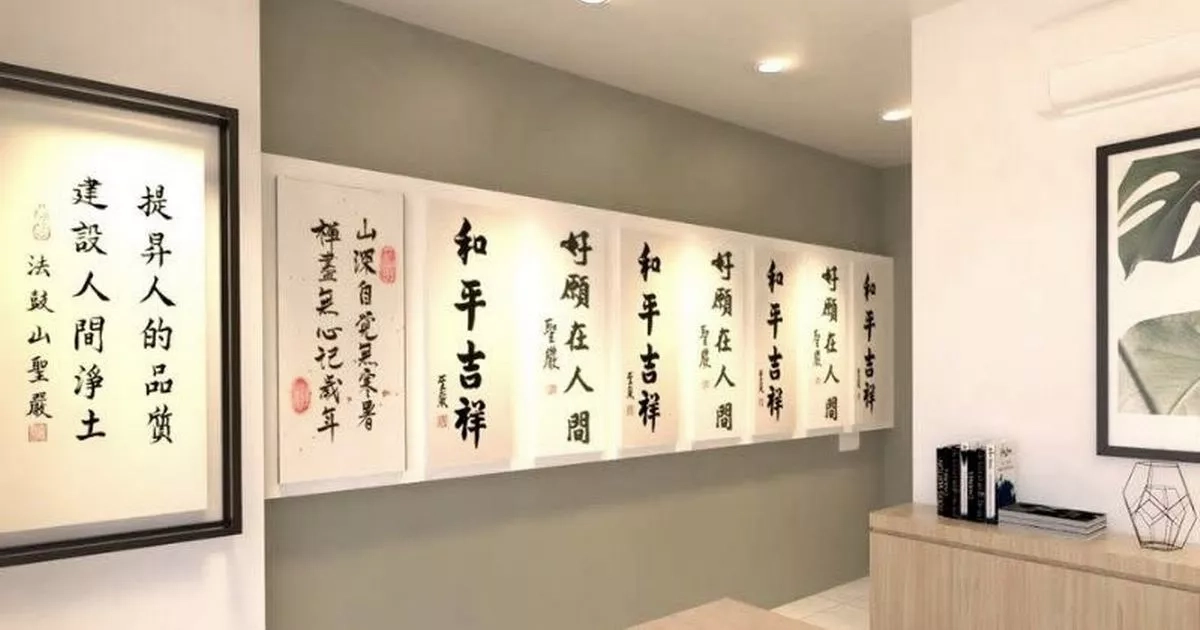 提昇人的品質
建設人間淨土
法鼓山聖嚴
山深自覺無寒暑
禪盡無心記歲年
和平吉祥
聖嚴
好願在人間
聖嚴
和平吉祥
聖嚴
好願在人間
聖嚴
和平吉祥
聖嚴
好願在人間
聖嚴
和平吉祥